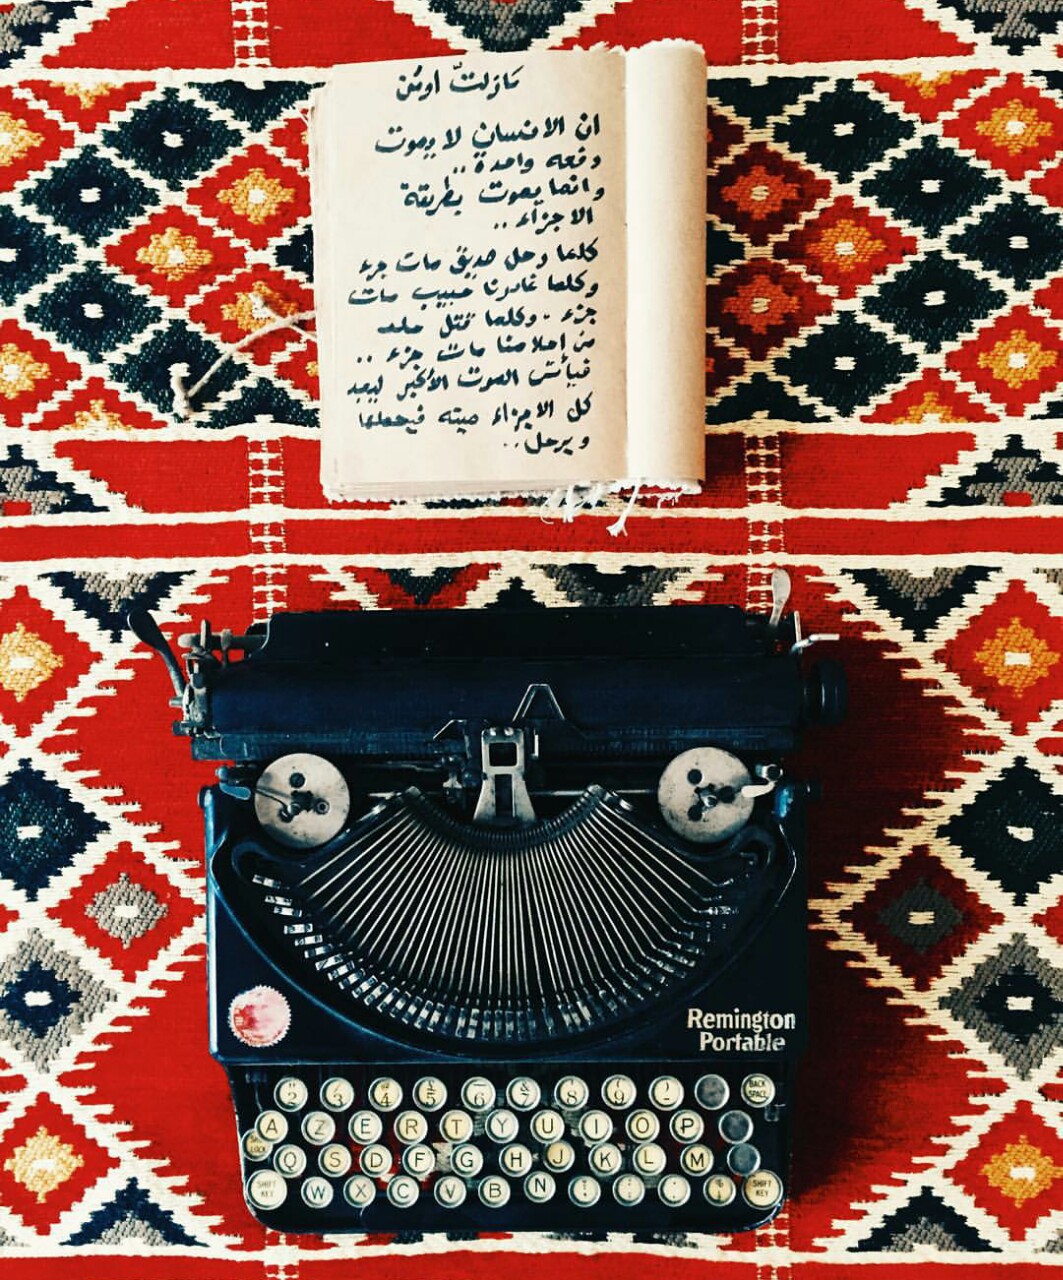 مازلت أومن
ان الانسان لا يموت
دفعه واحدة ..
وانما يموت بطريقة
الاجزاء ..
كلما رحل صديق مات جزء
وكلما غادرنا حبيب مات
جزء . وكلما قتل حلم
من احلامنا مات جزء ..
فيأتي الموت الأكبر ليجد
كل الاجزاء ميته فيحملها
ويرحل ..
Remington
Portable
2 3 4 5 6 & 7 8 ( 9 - BACK SPACE
A Z E R T Y U I O P
LOCK Q S D F G H J K L M
SHIFT KEY W X C V B N SHIFT KEY